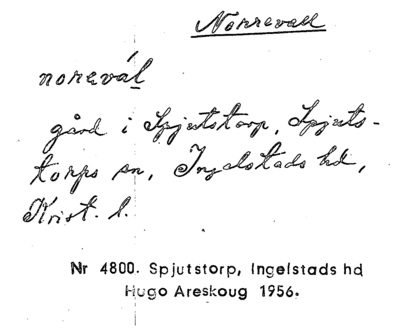 Norrevall
norevál
gård i Spjutstorp, Spjuts-
torps sn, Ingelstads hd,
Krist. l.
Nr 4800. Spjutstorp, Ingelstads hd
Hugo Areskoug 1956.